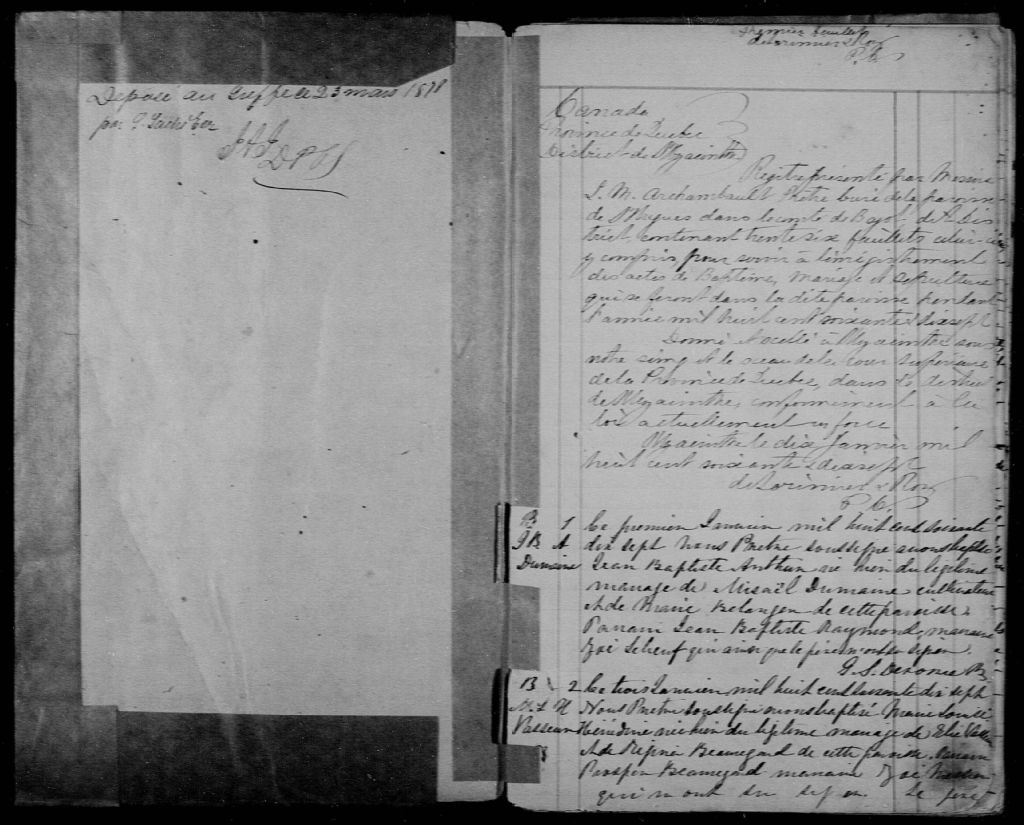 Déposé au Greffe le 23 mars 1878
par
J A J
D P C S
Premier feuillet
deLorimier & Roy
P. C.
Canada
Province de Quebec
District de St Hyacinthe
Registre présenté par Messire
J. M. Archambault Prêtre Curé de la paroisse
de St Hugues dans le comté de Bagot de ce Dis
trict, contenant trente six feuillets celui-ci
y compris, pour servir à l'enrégistrement
des actes de Baptême, Mariage et Sépulture
qui se feront dans la dite paroisse pendant
l'année mil huit cent soixante & dixsept
Donné et scellé à St Hyacinthe sous
notre seing et le sceau de la cour supérieure
de la Province de Quebec, dans le district
de St Hyacinthe, conformément à la
loi actuellement en force
St Hyacinthe le dix Janvier mil
huit cent soixante & dixsept
deLorimier & Roy
P. C.
B 1 Le premier Janvier mil huit cent soixante
J B A dix sept Nous Prêtre soussigné avons baptisé
Dumaine Jean Baptiste Arthur né hier du légitime
mariage de Misaël Dumaine cultivateur
et de Marie Belanger de cette paroisse.
Parrain Jean Baptiste Raymond, marraine
Zoé Leboeuf qui ainsi que le père n'ont su signer.
B 2 Le trois Janvier mil huit cent soixante dix sept
M L H Nous Prêtre soussigné avons baptisé Marie Louise
née hier du légitime mariage de Elie
et de Regina Beauregard de cette paroisse. Parrain
Prosper Beauregard marraine Zoé
qui n'ont su signer. Le père